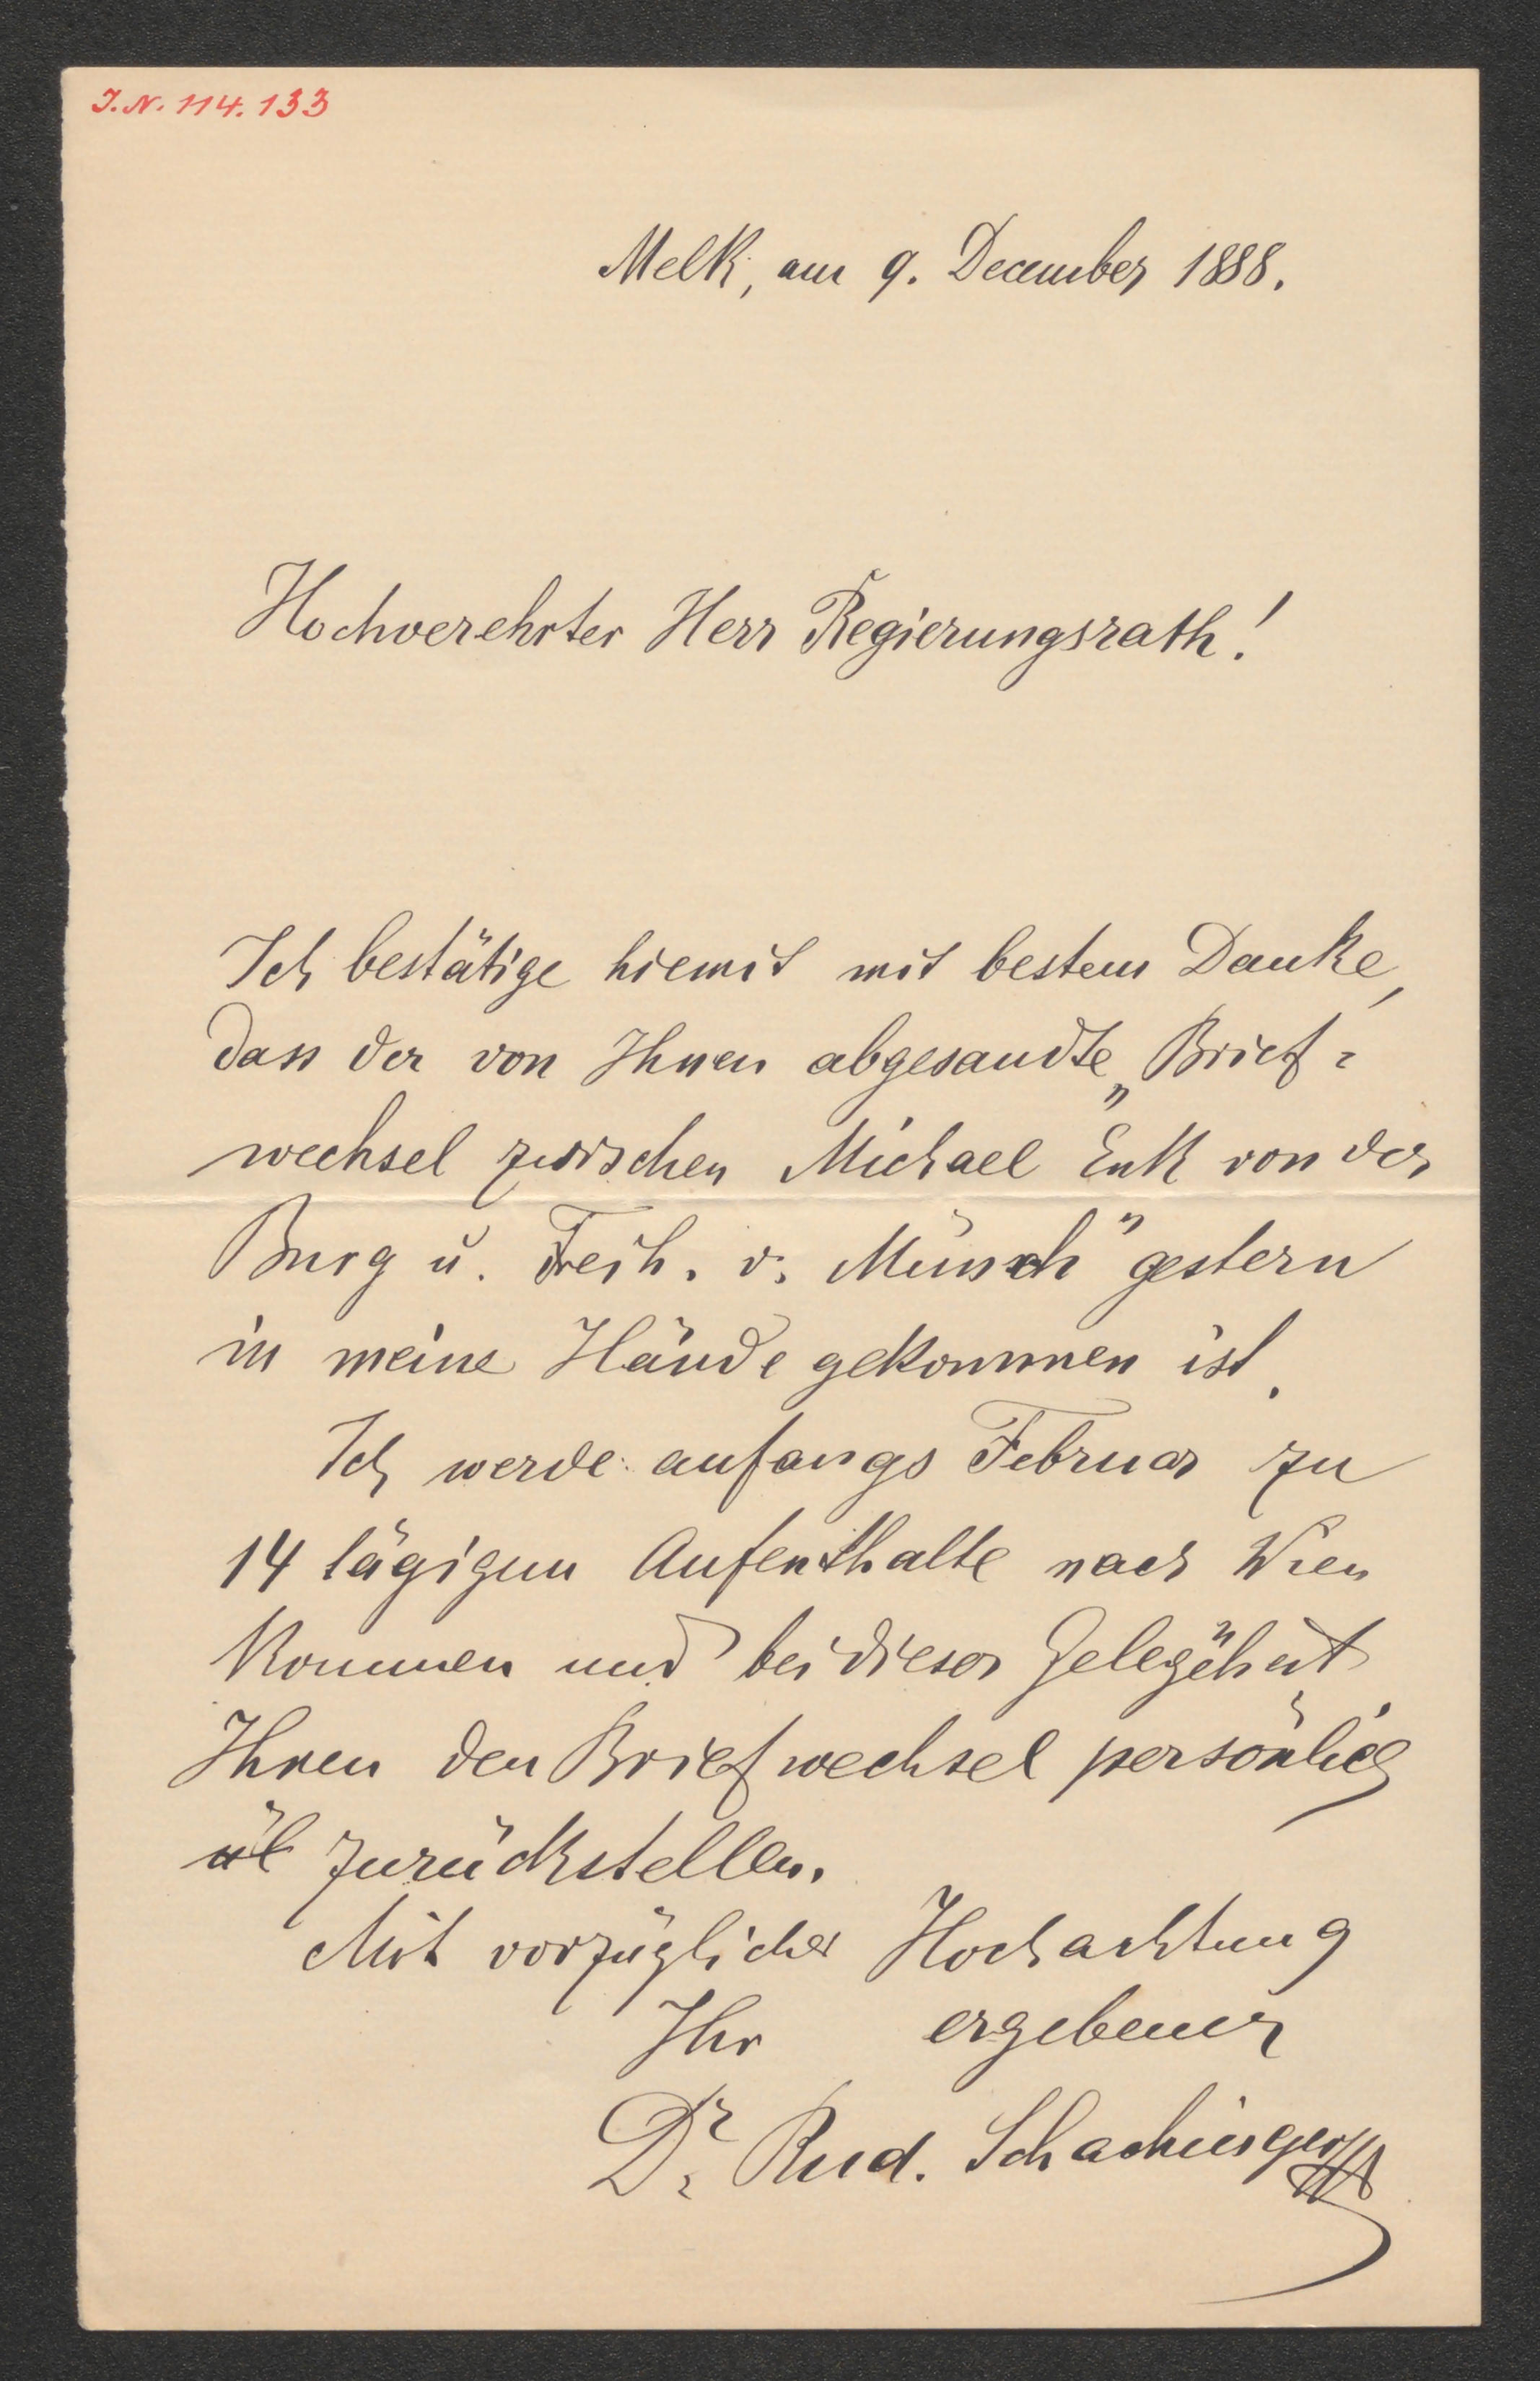 J. N. 114.133
Melk, am 9. December 1888.
Hochverehrter Herr Regierungsrath!
Ich bestätige hiemit mit bestem Danke,
dass der von Ihnen abgesandte „Brief-
wechsel zwischen Michael Enk von der
Burg u. Freih. v. Münch" gestern
in meine Hände gekommen ist.
Ich werde anfangs Februar zu
14 tägigem Aufenthalte nach Wien
kommen und bei dieser Gelegenheit
Ihnen den Briefwechsel persönlich
zurückstellen.
Mit vorzüglicher Hochachtung
Ihr ergebener
Dr. Rud. Schachinger